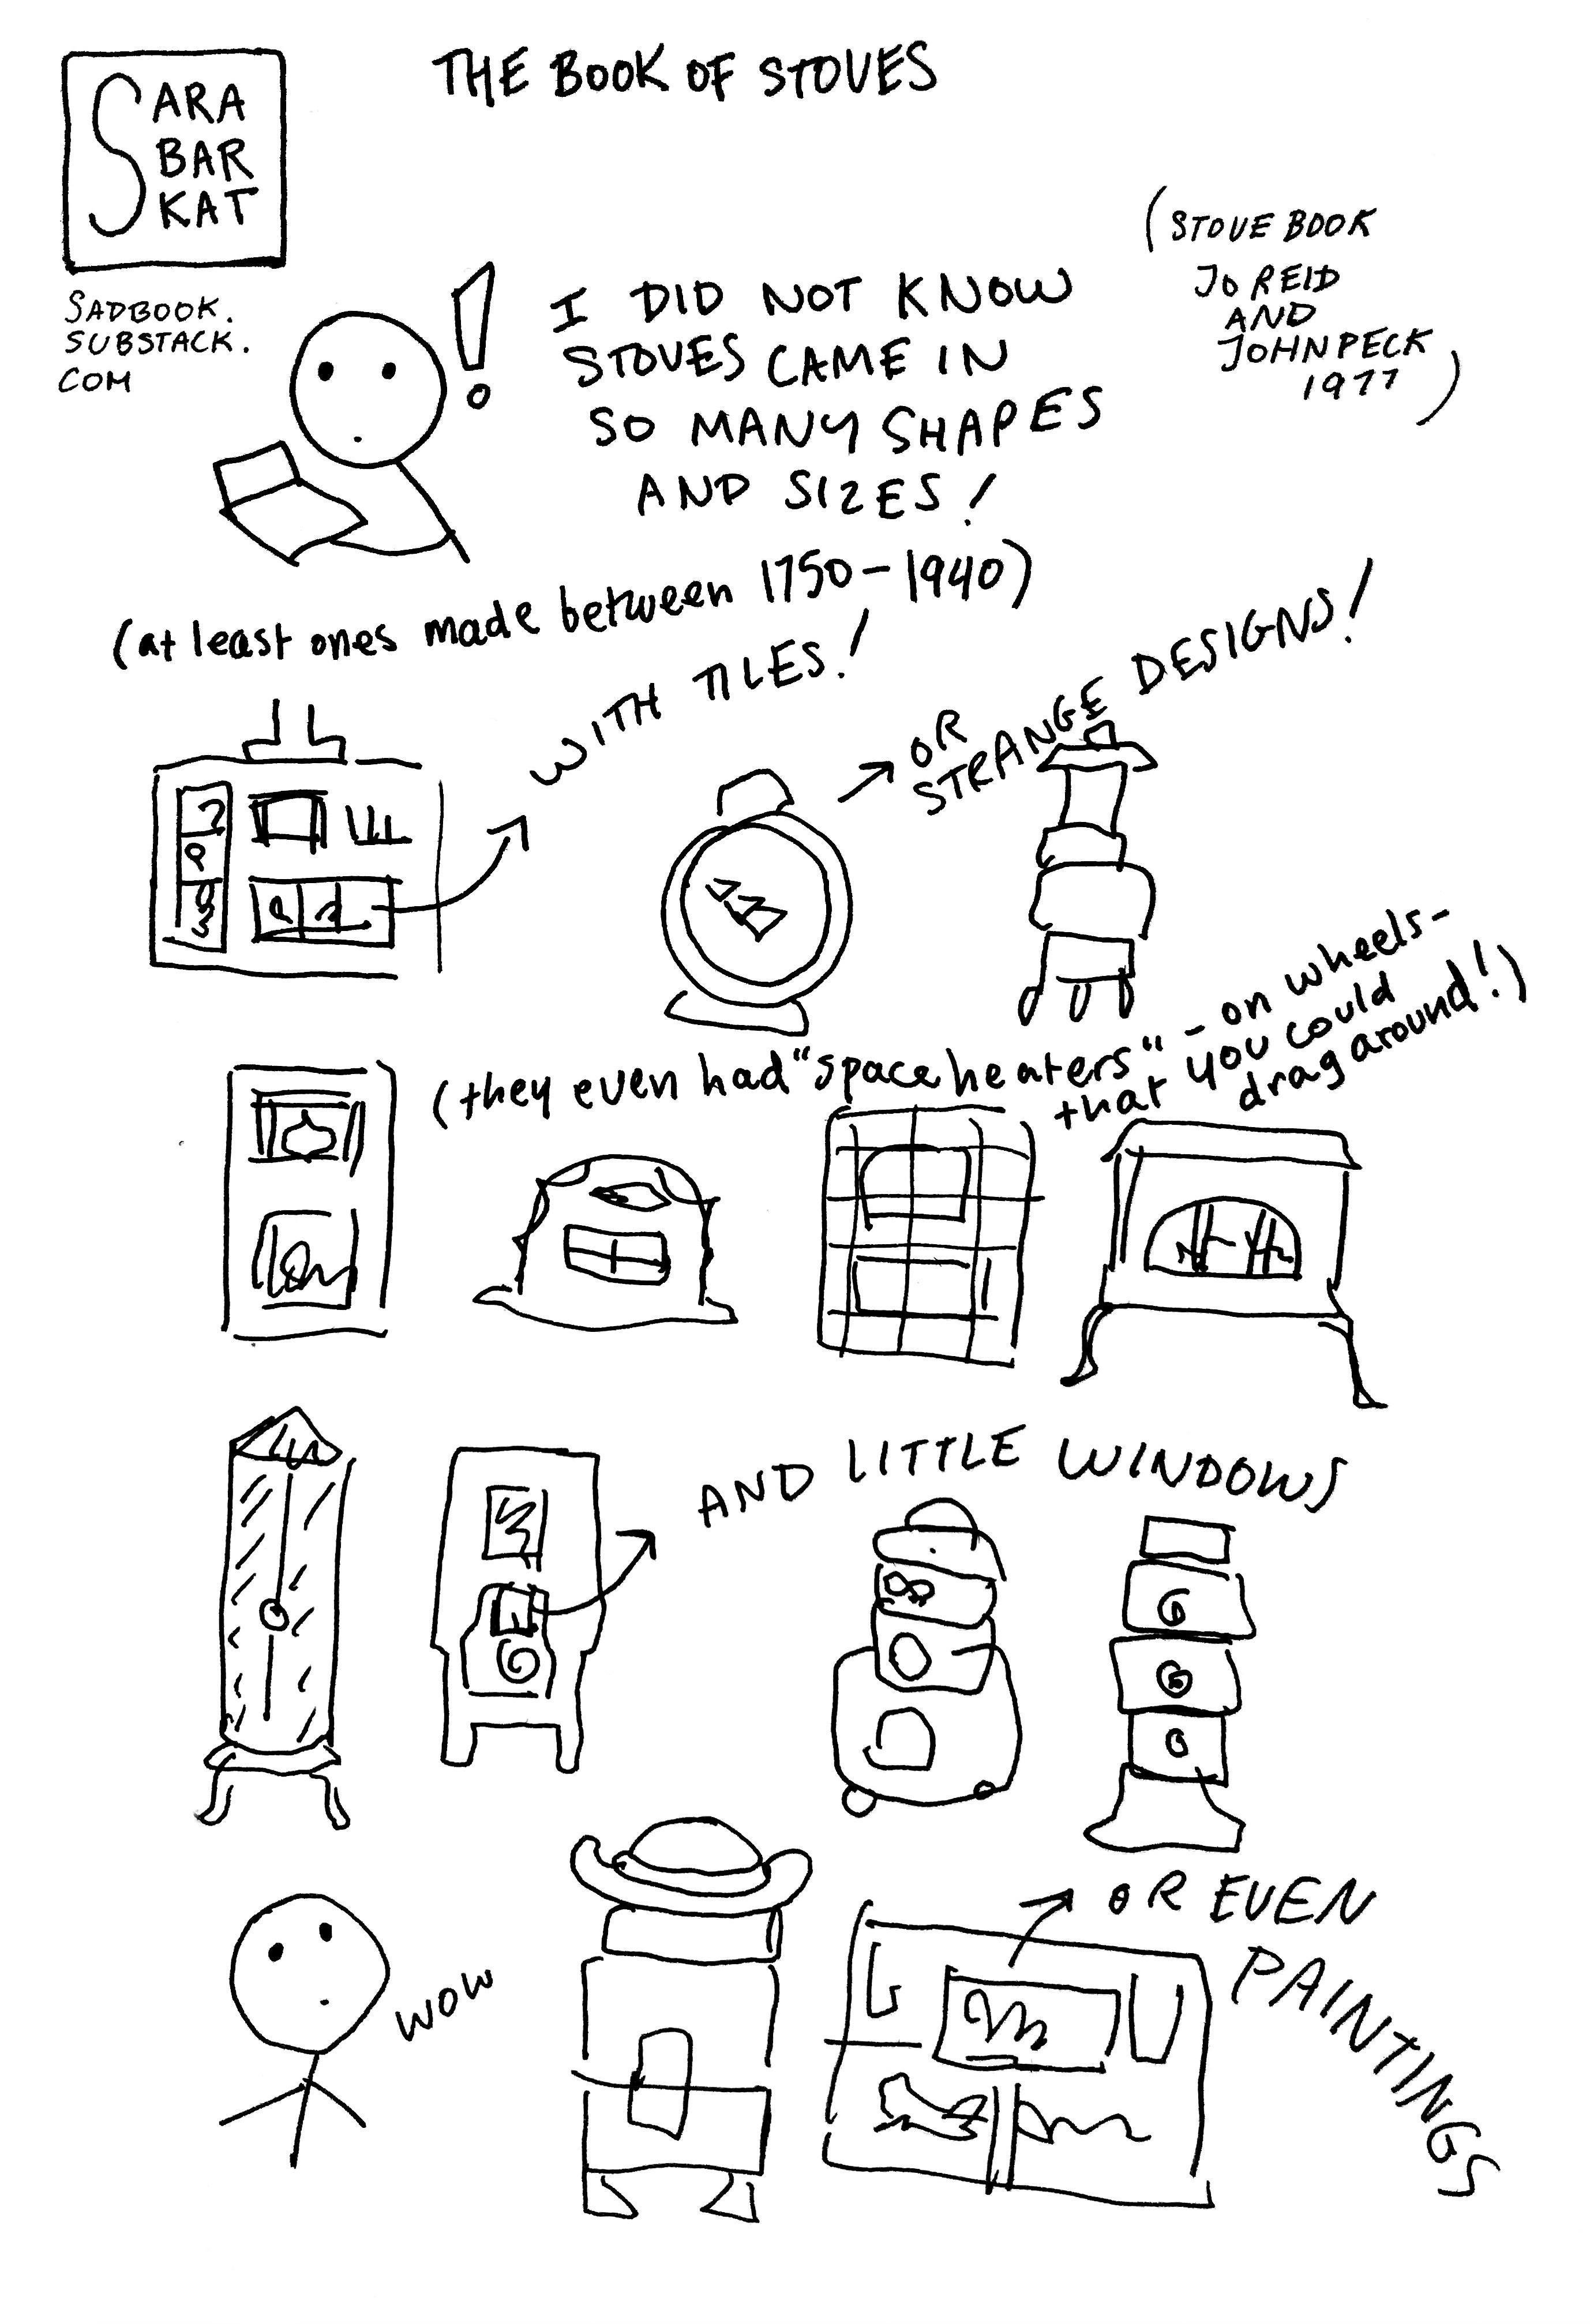 THE BOOK OF STOVES
SARA
BAR
KAT
SADBOOK.
SUBSTACK.
COM
(STOVE BOOK
JO REID
AND
JOHN PECK
1977)
I DID NOT KNOW
STOVES CAME IN
SO MANY SHAPES
AND SIZES!
(at least ones made between 1750-1940)
WITH TILES!
OR
STRANGE DESIGNS!
(they even had "space heaters" - on wheels-
that you could
drag around!)
AND LITTLE WINDOWS
WOW
OR EVEN
PAINTINGS